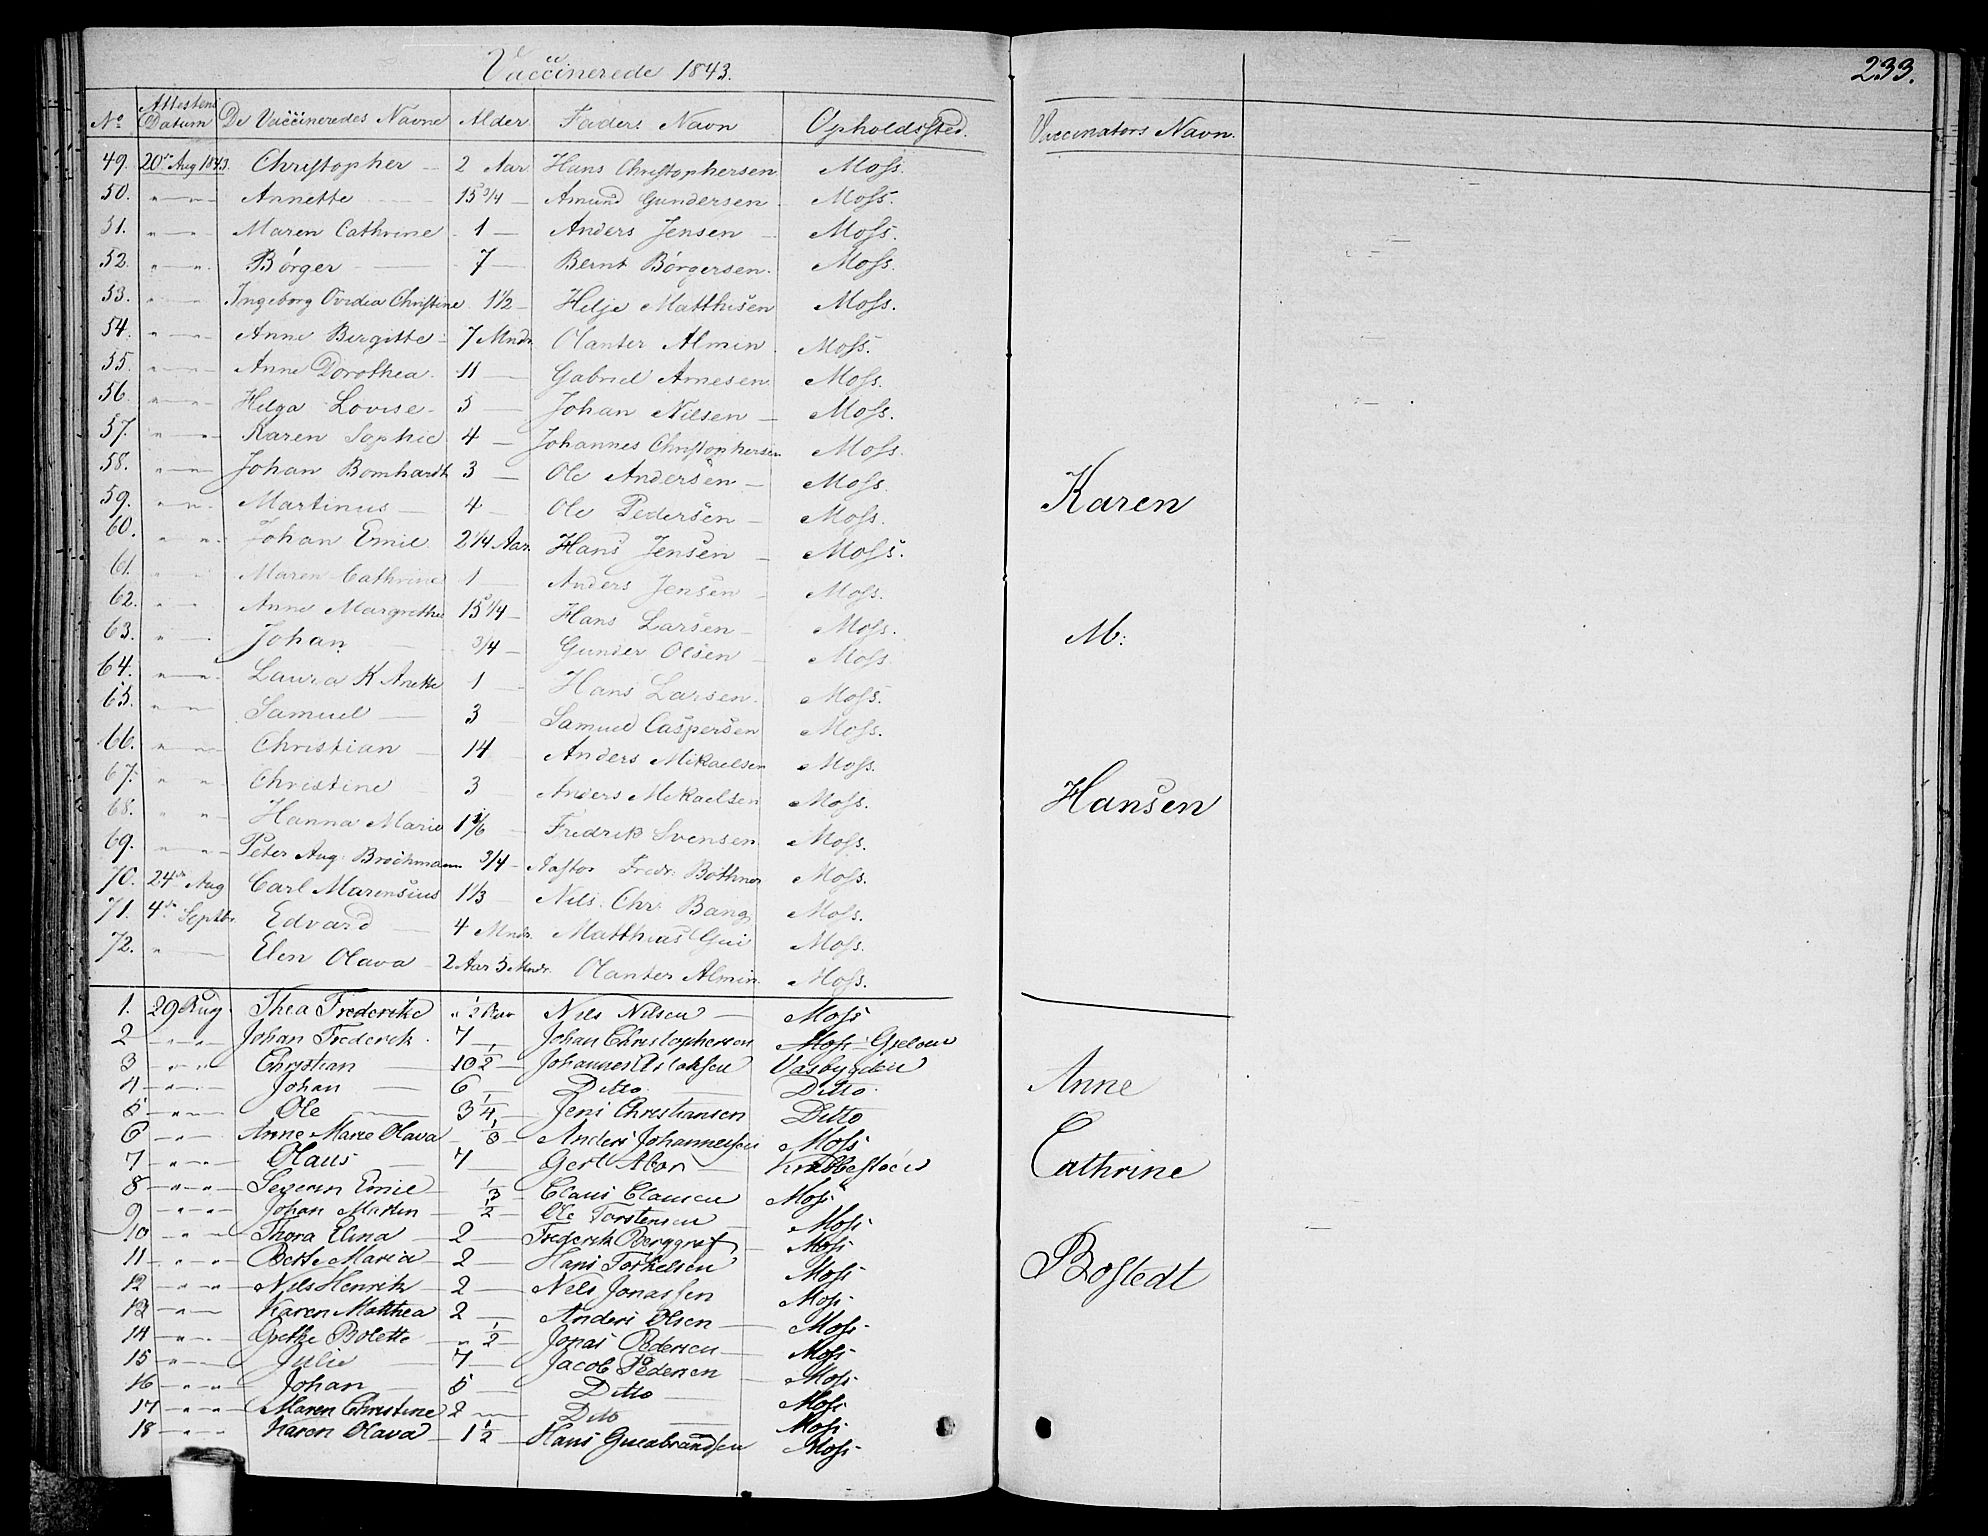 Vaccinerede 1843.
233.
No Attestens Datum De Vaccineredes Navne Alder Faders Navn Opholdssted. Vaccinators Navn.
49. 20de Aug 1843. Christopher — 2 Aar Hans Christophersen Moss.
50. " — " Annette 15 3/4 — Amund Gundersen Moss.
51. " — " Maren Cathrine 1 — Anders Jensen — Moss.
52. " — " Börger — 7 — Bernt Börgersen. Moss.
53. " — " Ingeborg Ovidia Christine 1 1/2 — Helje Matthisen Moss.
54. " — " Anne Birgitte 7 Mndr. Olanter Almin Moss.
55. " — " Anne Dorothea. 11 — Gabriel Arnesen Moss.
56. " — " Helga Lovise 5 — Johan Nilsen — Moss.
57. " — " Karen Sophie 4 — Johannes Christophersen Moss.
58. " — " Johan Bomhardt 3 — Ole Andersen — Moss.
59. " — " Martinus — 4 — Ole Pedersen — Moss. Karen
60. " — " Johan Emil 2 1/4 Aar. Hans Jensen — Moss.
61. " — " Maren Cathrine 1 — Anders Jensen — Moss.
62. " — " Anne Margrethe 15 1/4 — Hans Larsen — Moss.
63. " — " Johan 3/4 — Gunder Olsen — Moss. M:
64. " — " Laura K Anette 1 — Hans Larsen. Moss.
65. " — " Samuel — 3 — Samuel Caspersen Moss.
66. " — " Christian — 14 — Anders Mikaelsen Moss.
67. " — " Christine — 3 — Anders Mikaelsen Moss. Hansen
68. " — " Hanna Marie 1 1/6 — Fredrik Svensen Moss.
69. " — " Peter Aug: Brochmann 3/4 — Fredr. Bothner Moss.
70. 24de Aug Carl Marensius 1 1/3 Nils Chr. Bang Moss.
71. 4de Septbr. Edvard — 4 Mndr. Matthias Moss.
72. " — Elen Olava 2 Aar 5 Mndr. Olanter Almin. Moss.
1. 29 Aug. Thea Frederikke " 1/2 Aar Nils Nilsen — Moss
2 " — " Johan Frederik. 7 — Johan Christophersen Moss
3 " — " Christian — 10 1/2 — Johannes Aslaksen Vaabyeden
4 " — " Johan — 6 — Ditto. Ditto. Anne
5 " — " Ole — 3 1/4 — Jens Christiansen Ditto
6 " — " Anne Marie Olava — 1/3 — Anders Johannessen Moss
7 " — " Olaus — 7 — Gert Cathrine
8 " — " Severin Emil — 1/3 — Claus Clausen Moss
9 " — " Johan Martin — 1/2 — Ole Torstensen — Moss
10 " — " Thora Elina — 2 — Frederik Berggref — Moss
11 " — " Berte Maria — 2 — Hans Torkelsen Moss Bostedt
12 " — " Nils Henrik — 2 — Nels Jonassen Moss
13 " — " Karen Matthea 2 — Anders Olsen — Moss
14 " — " Grethe Bolette " 1/2 — Jonas Pedersen — Moss
15 " — " Julie 7 — Jacob Pedersen Moss
16 " — " Johan — 5 — Ditto — Moss
17 " — " Maren Christine 2 — Dito — Moss
18 " — " Karen Olava — 1 1/2 — Hans Gulbrandsen Moss